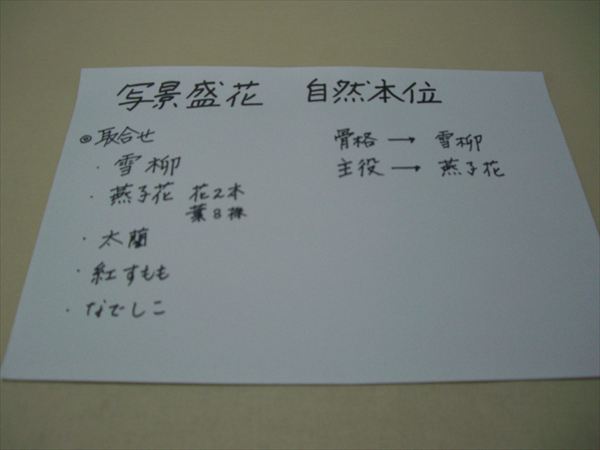 写景盛花 自然本位
◎取合せ
・雪柳
・燕子花 花2本
葉8株
・太藺
・紅すもも
・なでしこ
骨格→雪柳
主役→燕子花